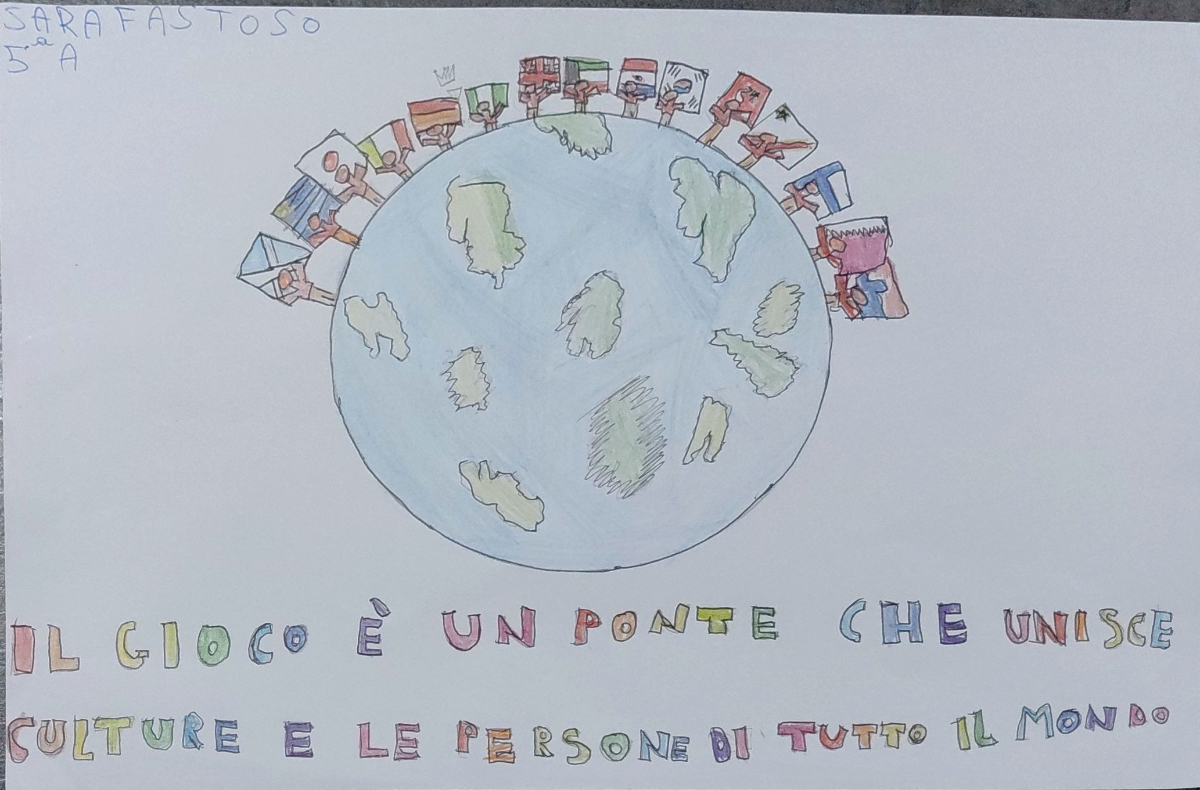 SARA FASTOSO
5ª A
IL GIOCO È UN PONTE CHE UNISCE
CULTURE E LE PERSONE DI TUTTO IL MONDO